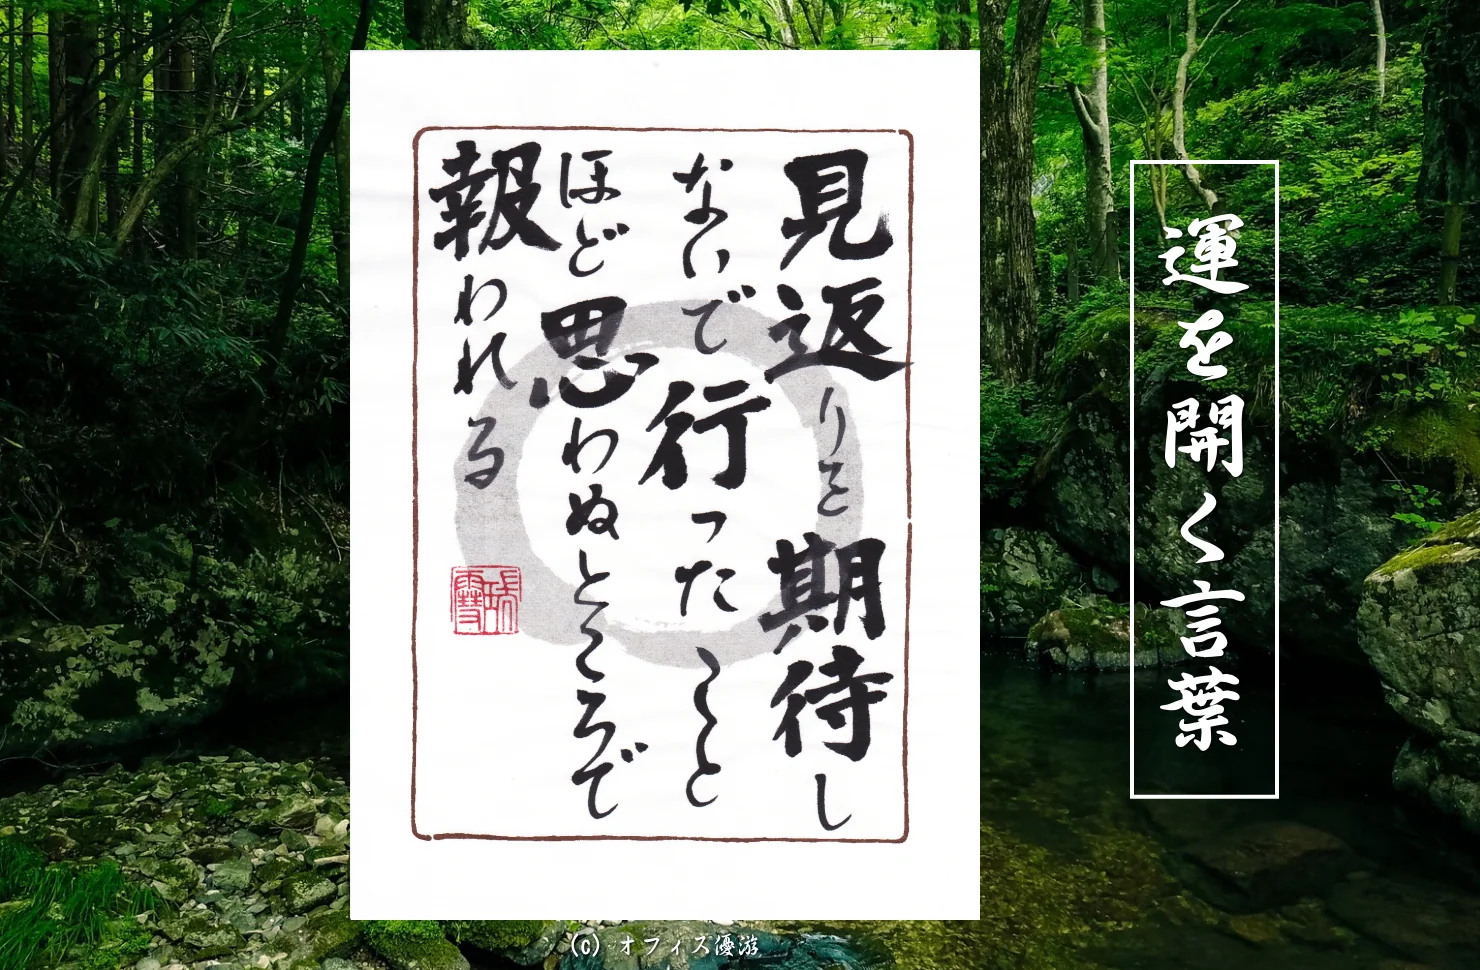 運を開く言葉
見返りを期待し
ないで行ったことと
ほど思わぬところで
報われる
(C) オフィス優游